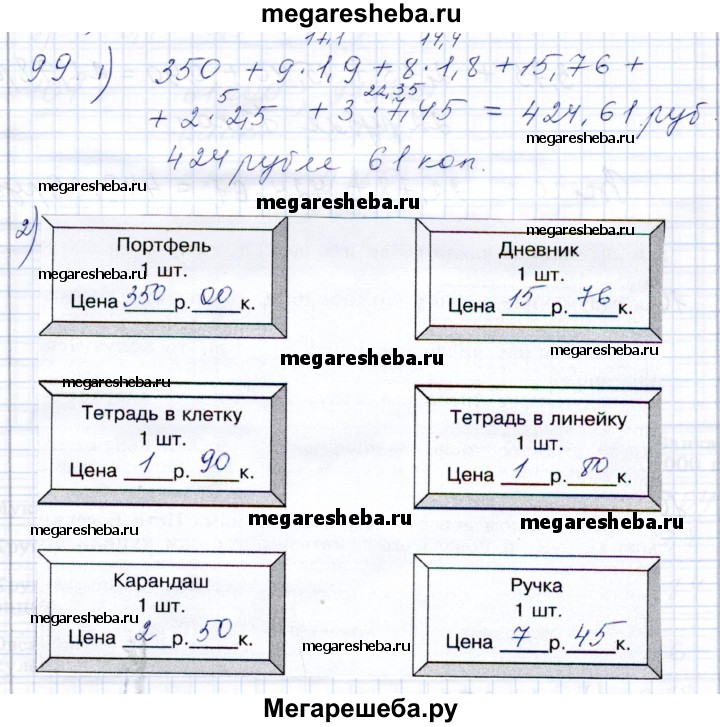 megaresheba.ru
17,1 14,4
99. 1) 350 + 9·1,9 + 8·1,8 + 15,76 +
5 22,35
+ 2·2,5 + 3·7,45 = 424,61 руб.
megaresheba.ru
424 рубле 61 коп.
megaresheba.ru
megaresheba.ru
2)
Портфель
1 шт.
Цена 350 р. 00 к.
Дневник
1 шт.
Цена 15 р. 76 к.
megaresheba.ru
megaresheba.ru
megaresheba.ru
megaresheba.ru
megaresheba.ru
Тетрадь в клетку
1 шт.
Цена 1 р. 90 к.
Тетрадь в линейку
1 шт.
Цена 1 р. 80 к.
megaresheba.ru
megaresheba.ru
Карандаш
1 шт.
Цена 2 р. 50 к.
Ручка
1 шт.
Цена 7 р. 45 к.
megaresheba.ru
megaresheba.ru
Мегарешеба.ру